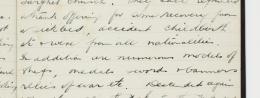 a thank offering for some recovery from
a sickbed, accident childbirth
it were from all nationalities.
In addition are numerous models of
ships, medals swords & banners
relics of war etc.
again